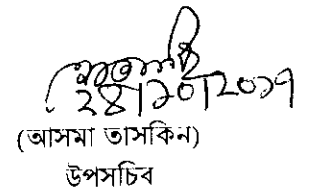 ২৪/১০/২০১৭
(আসমা তাসকিন)
উপসচিব